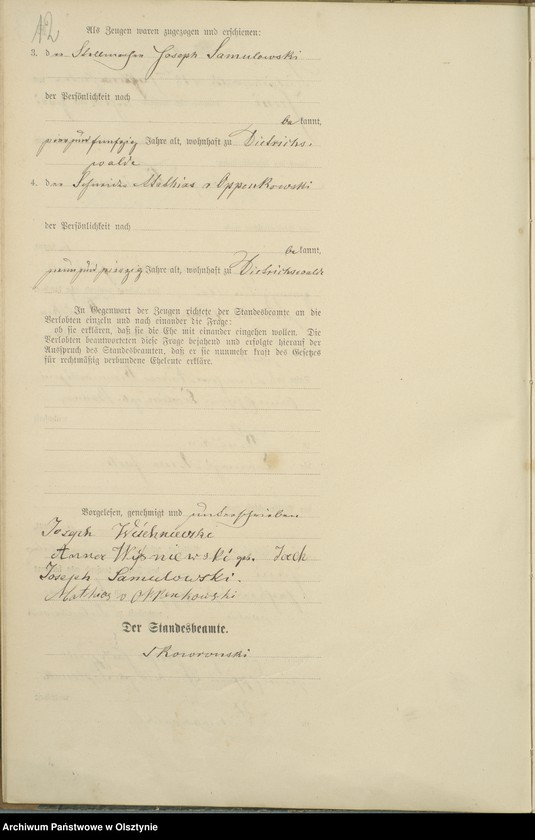 12
Als Zeugen waren zugezogen und erschienen:
3. der Stellmacher Joseph Samulowski
der Persönlichkeit nach
be kannt,
vier und fünfzig Jahre alt, wohnhaft zu Dietrichs-
walde
4. der Schneider Mathias v Oppenkowski
der Persönlichkeit nach
be kannt,
neun und vierzig Jahre alt, wohnhaft zu Dietrichswalde
In Gegenwart der Zeugen richtete der Standesbeamte an die
Verlobten einzeln und nach einander die Frage:
ob sie erklären, daß sie die Ehe mit einander eingehen wollen. Die
Verlobten beantworteten diese Frage bejahend und erfolgte hierauf der
Ausspruch des Standesbeamten, daß er sie nunmehr kraft des Gesetzes
für rechtmäßig verbundene Eheleute erkläre.
Vorgelesen, genehmigt und unterschrieben
Joseph Wischnewski
Anna Wiśniewski geb.
Joseph Samulowski.
Mathias v Oppenkowski
Der Standesbeamte.
Skowronski
Archiwum Państwowe w Olsztynie